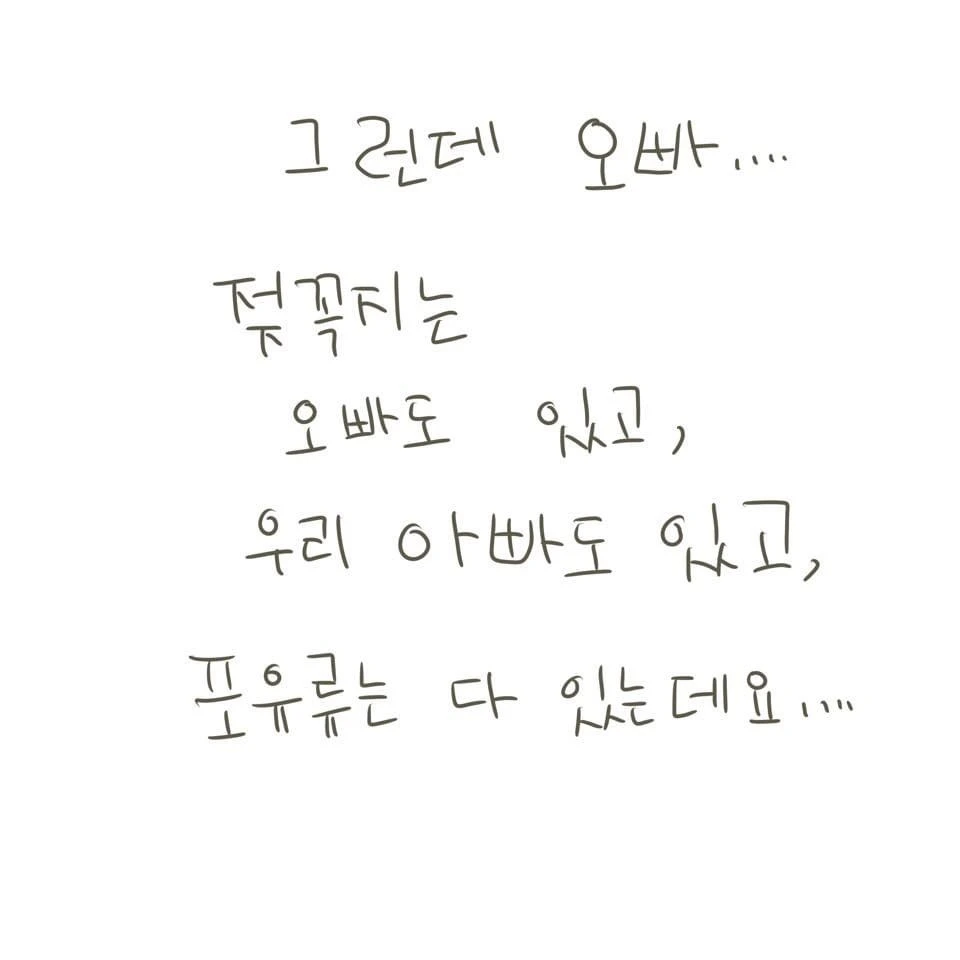 그런데 오빠....
젖꼭지는
오빠도 있고,
우리 아빠도 있고,
포유류는 다 있는데요....